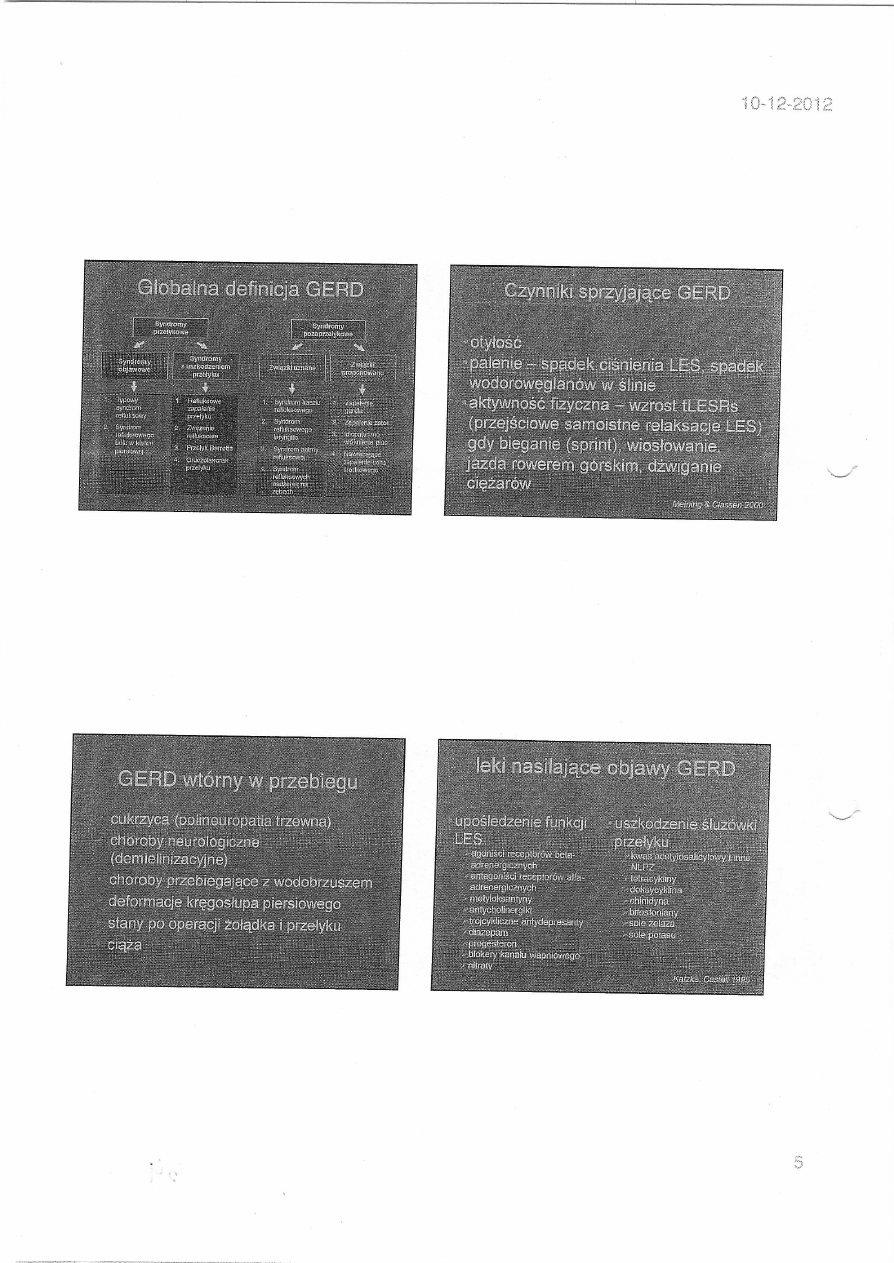 10-12-2012
Globalna definicja GERD
Syndromy
przełykowe
Syndromy
pozaprzełykowe
Syndromy
objawowe
Syndromy
z uszkodzeniem
przełyku
Związki uznane
Związki
proponowane
1. Typowy
syndrom
refluksowy
2. Syndrom
refluksowego
bólu w klatce
piersiowej
1. Refluksowe
zapalenie
przełyku
2. Zwężenie
refluksowe
3. Przełyk Barretta
4. Gruczolakorak
przełyku
1. Syndrom kaszlu
refluksowego
2. Syndrom
refluksowego
laryngitis
3. Syndrom astmy
refluksowej
4. Syndrom
refluksowych
nadżerek na
zębach
zapalenie
gardła
zapalenie zatok
3.
włóknienie płuc
4. Nawracające
zapalenie ucha
środkowego
Czynniki sprzyjające GERD
otyłość
palenie – spadek ciśnienia LES, spadek
wodorowęglanów w ślinie
aktywność fizyczna – wzrost tLESRs
(przejściowe samoistne relaksacje LES)
gdy bieganie (sprint), wiosłowanie
jazda rowerem górskim, dźwiganie
ciężarów
Meining & Classen 2000
GERD wtórny w przebiegu
cukrzyca (polineuropatia trzewna)
choroby neurologiczne
(demielinizacyjne)
choroby przebiegające z wodobrzuszem
deformacje kręgosłupa piersiowego
stany po operacji żołądka i przełyku
ciąża
leki nasilające objawy GERD
upośledzenie funkcji
LES
agoniści receptorów beta-
adrenergicznych
antagoniści receptorów alfa-
adrenergicznych
metyloksantyny
antycholinergiki
trójcykliczne antydepresanty
diazepam
progesteron
blokery kanału wapniowego
nitraty
uszkodzenie śluzówki
przełyku
kwas acetylosalicylowy i inne
NLPZ
tetracykliny
doksycyklina
chinidyna
bifosfoniany
sole żelaza
sole potasu
Katzka, Castell
5